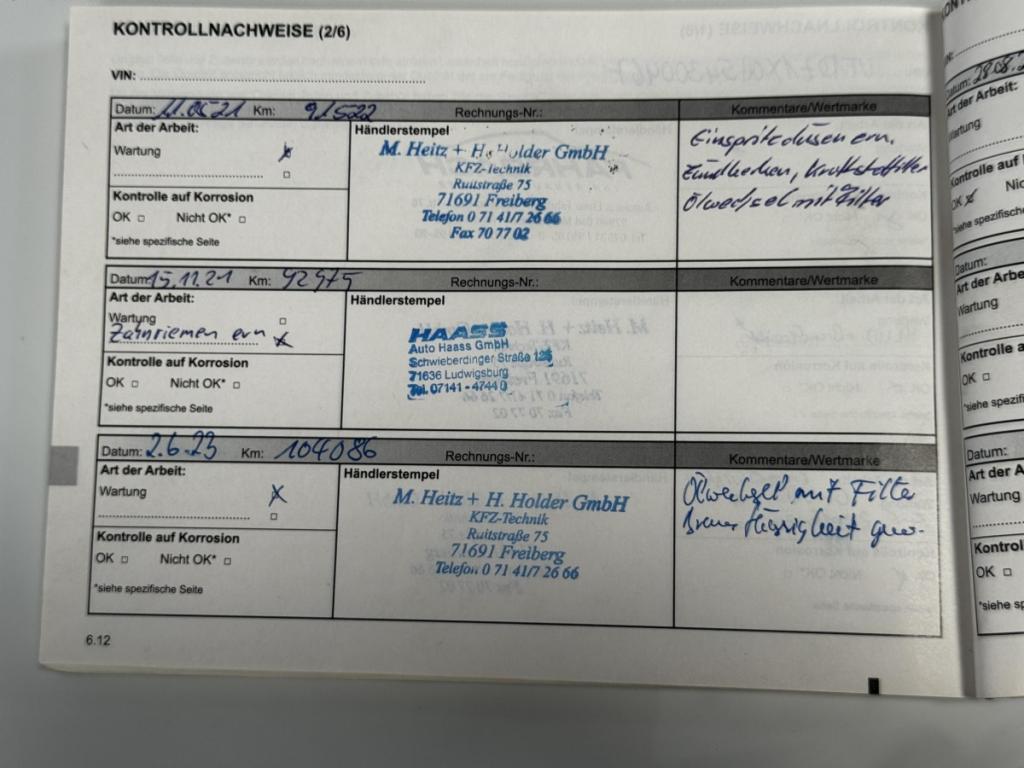 KONTROLLNACHWEISE (2/6)
VIN:
Datum: 11.05.21 Km: 91522 Rechnungs-Nr.: Kommentare/Wertmarke
Art der Arbeit:
Wartung
Kontrolle auf Korrosion
OK Nicht OK*
*siehe spezifische Seite
Händlerstempel
M. Heitz + H. Holder GmbH
KFZ-Technik
Ruitstraße 75
71691 Freiberg
Telefon 0 71 41/7 26 66
Fax 70 77 02
Einspritzdüsen ern.
Zündkerzen, Kraftstofffilter
Ölwechsel mit Filter
Datum: 15.11.21 Km: 92975 Rechnungs-Nr.: Kommentare/Wertmarke
Art der Arbeit:
Wartung
Zahnriemen ern
Kontrolle auf Korrosion
OK Nicht OK*
*siehe spezifische Seite
Händlerstempel
HAASS
Auto Haass GmbH
Schwieberdinger Straße 125
71636 Ludwigsburg
Tel. 07141 - 4744 0
Datum: 2.6.23 Km: 104086 Rechnungs-Nr.: Kommentare/Wertmarke
Art der Arbeit:
Wartung
Kontrolle auf Korrosion
OK Nicht OK*
*siehe spezifische Seite
Händlerstempel
M. Heitz + H. Holder GmbH
KFZ-Technik
Ruitstraße 75
71691 Freiberg
Telefon 0 71 41/7 26 66
Ölwechsel mit Filter
Bremsflüssigkeit gew.
6.12
Datum:
Art der Arbeit:
Wartung
Kontrolle auf
OK
*siehe spezifische
Datum:
Art der Arbe
Wartung
Kontrolle a
OK
*siehe spezif
Datum:
Art der A
Wartung
Kontrol
OK
*siehe s